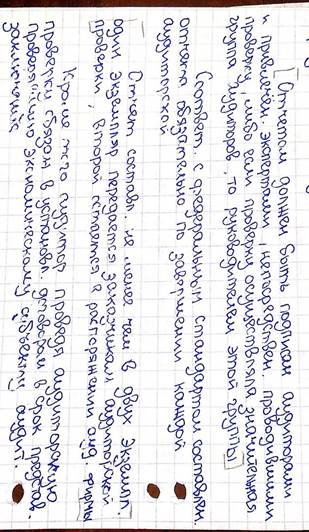 [Отчетом должен быть подписан аудиторами
и привлечен. экспертами, непосредствен. проводившими
проверку, либо если проверку осуществляла значительная
группа аудиторов, то руководителем этой группы]
Соответ. с федеральным стандартом составлен.
отчета обязательно по завершении каждой
аудиторской
Отчет составл. не менее чем в двух экземпл.
один экземпляр передается заказчикам аудиторской
проверки, второй остается в распоряжении ауд. фирмы
Кроме того аудитор проводя аудиторскую
проверку обязан в установл. договором в срок предостав.
проверяемому экономическому субъекту аудит.
заключение